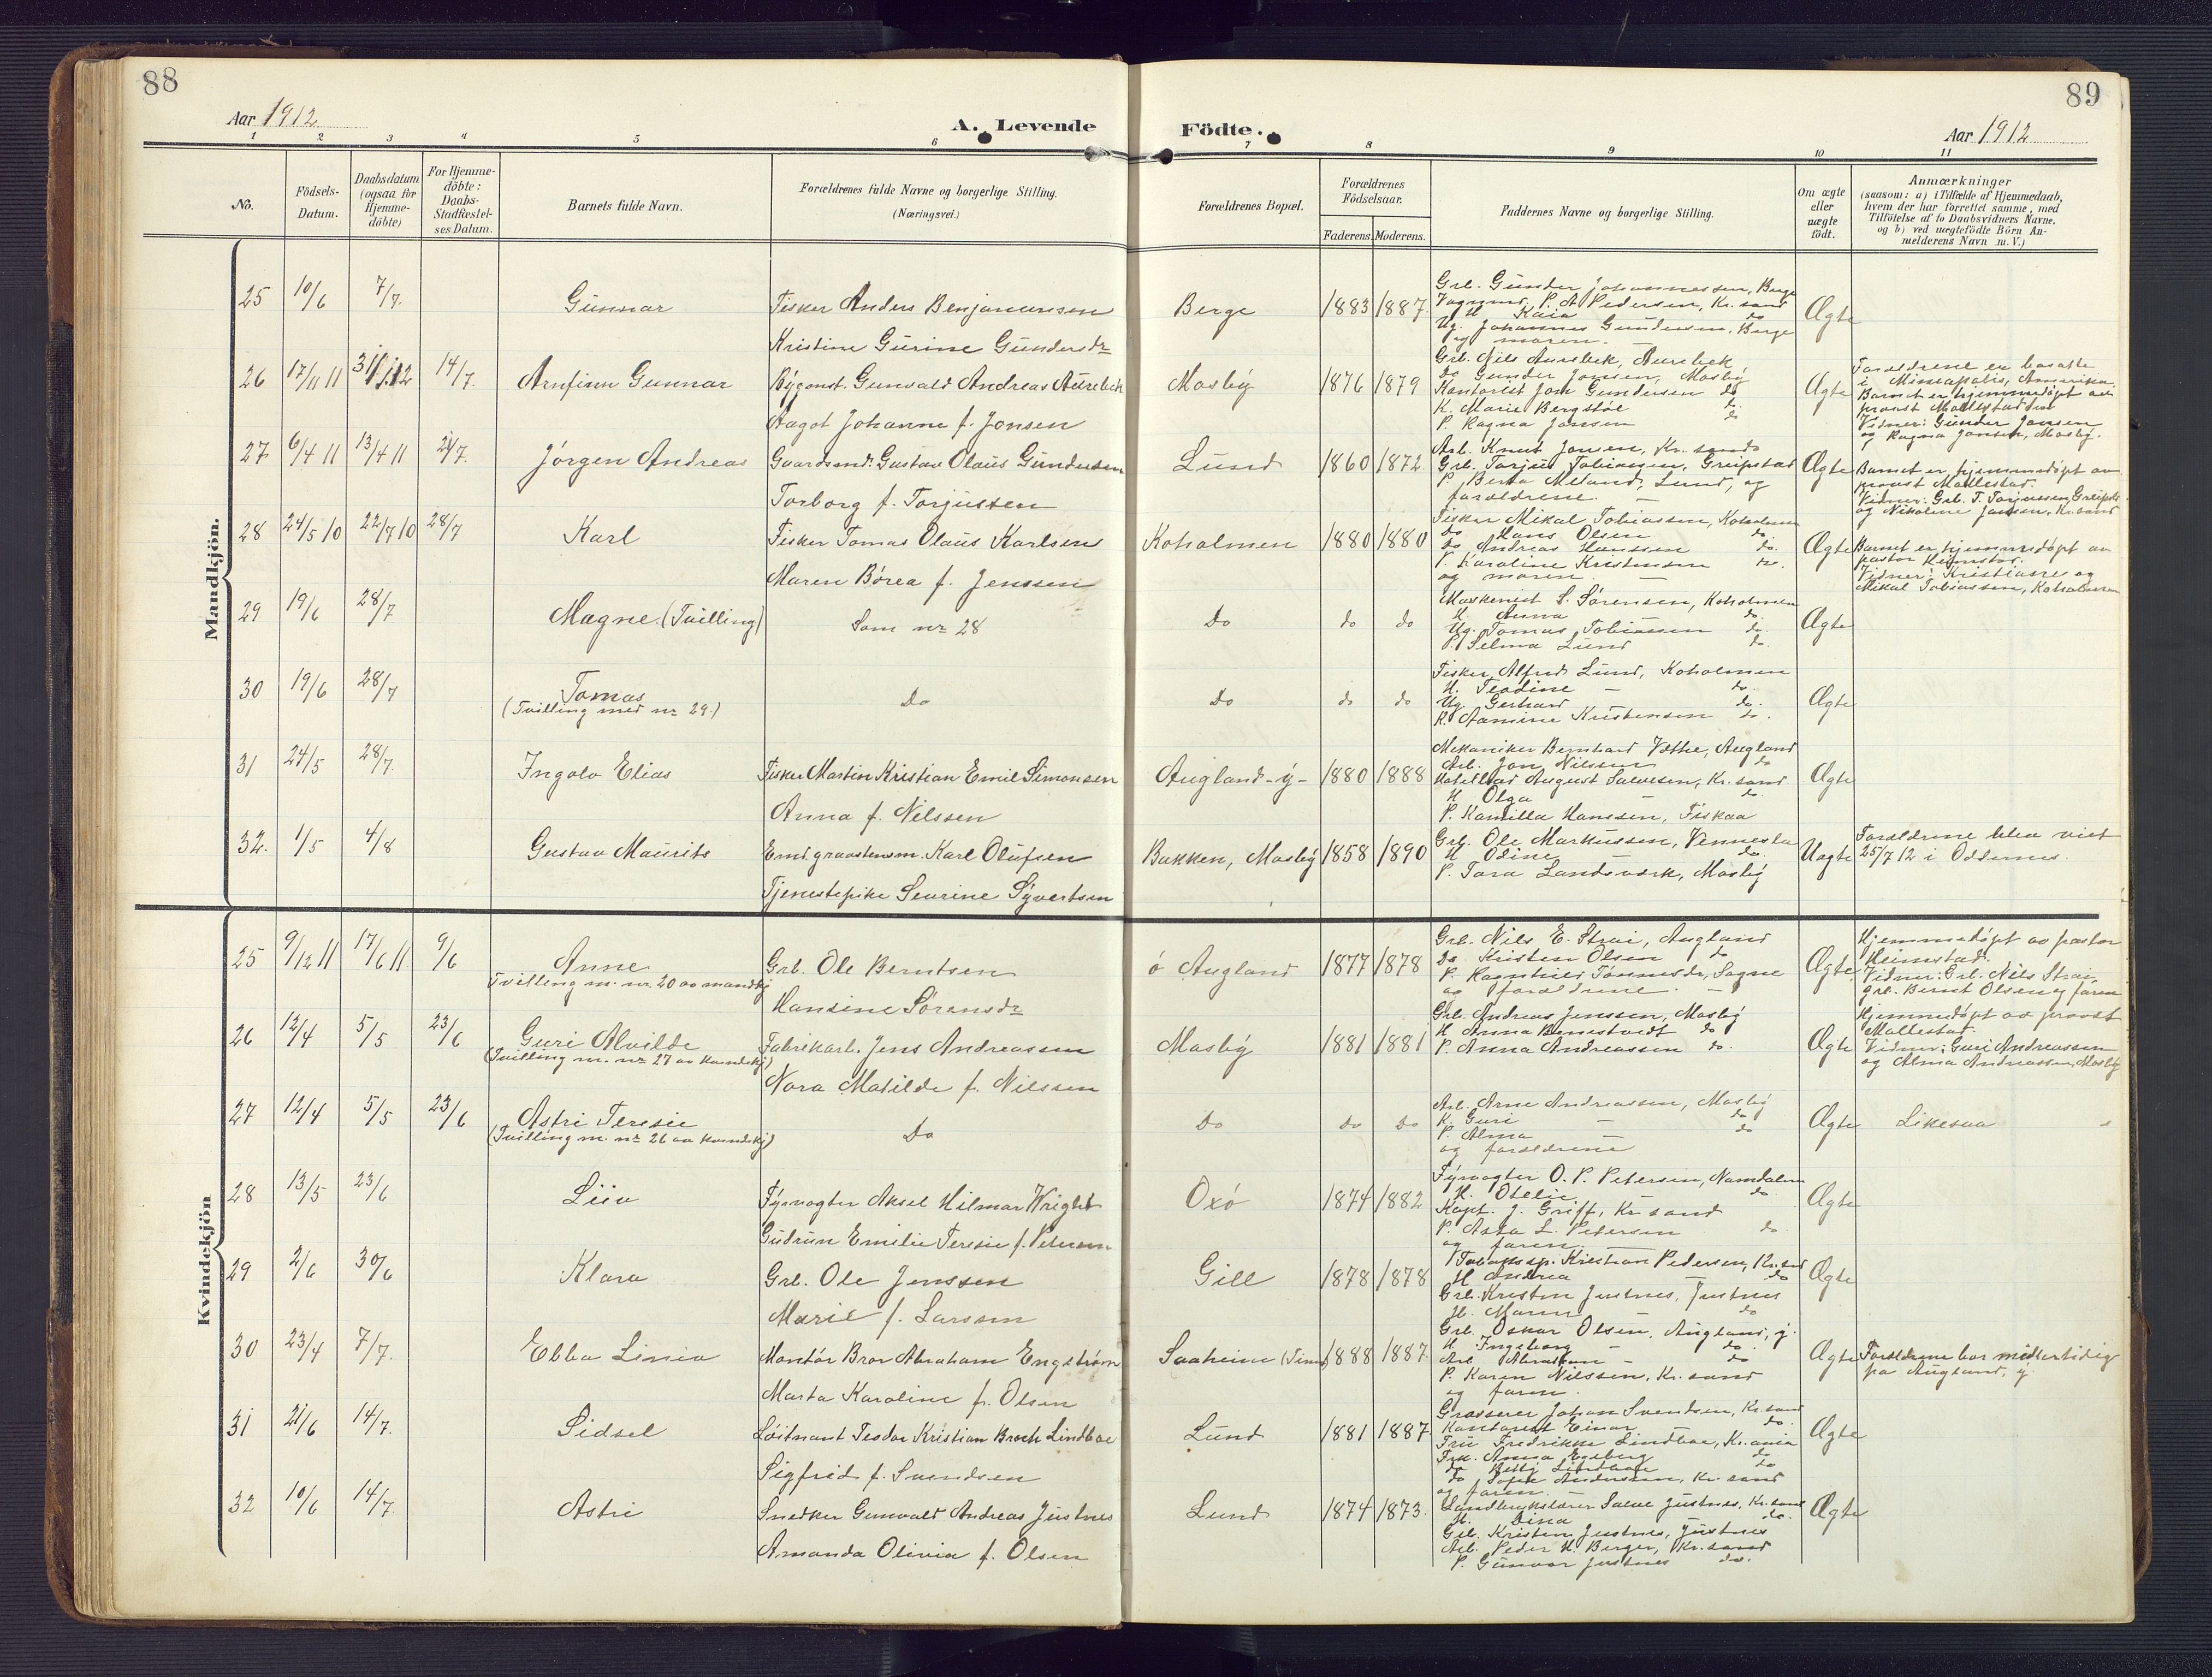 88
Aar 1912
A. Levende
Födte.
Aar 1912
89
1 2 3 4 5 6 7 8 9 10 11
No.
Födsels-Datum.
Daabsdatum (ogsaa for Hjemmedöbte)
For Hjemmedöbte: Daabs-Stadfæstelses Datum.
Barnets fulde Navn.
Forældrenes fulde Navne og borgerlige Stilling.
(Næringsvei.)
Forældrenes Bopæl.
Forældrenes Födselsaar.
Faderens. Moderens.
Faddernes Navne og borgerlige Stilling.
Om ægte eller uægte födt.
Anmærkninger
(saasom: a) i Tilfælde af Hjemmedaab, hvem der har forrettet samme, med Tilföielse af to Daabsvidners Navne, og b) ved uægtefödte Börn Anmelderens Navn m. V.)
Mandkjön.
25 10/6 7/7 Gunnar Fisker Anders Benjaminsen
Kristine Gurine Gundersdr
Berge 1883 1887
Grb. Gunder Johannessen, Berge
P. A. Pedersen, Kr. sand
H Kaia do
Ug. Johannes Gundersen, Berge
og moren.
Ægte
26 17/11 11 14/7. Arnfinn Gunnar Bygmst. Gunvald Andreas Aurebek
Aagot Johanne f. Jonsen
Mosby 1876 1879
Grb. Nils Aurebek, Aurebek
do Gunder Jonsen, Mosby
Kontorist Jon Gundersen do
K. Marie Bergstøl do
P. Ragna Jonsen do
Ægte
Forældrene er bosatte
i Mineapolis, Amerika.
Barnet er hjemmedöpt av
provst Mollestad
Vidner: Gunder Jonsen
og Ragna Jonsen, Mosby.
27 6/4 11 13/4 11 21/7. Jörgen Andreas Gaardsmd: Gustav Olaus Gundersen
Torborg f. Torjussen
Lund 1860 1872
Arb. Knut Jonsen, Kr. sand
Grb. Torjus Tobiassen, Greipstad
P. Berta Meland, Lund, og
forældrene.
Ægte
Barnet er hjemmedöpt av
provst Mollestad.
Vidner: Grb. T. Torjussen, Greipst.
og Nikoline Jonsen, Kr. sand
28 24/5 10 22/7 10 28/7 Karl Fisker Tomas Olaus Karlsen
Maren Börea f. Jenssen
Koholmen 1880 1880
Fisker Mikal Tobiassen, Koholmen
do Hans Olsen do
do Andreas Hanssen do.
P. Karoline Kristensen do.
og moren.
Ægte
Barnet er hjemmedöpt av
pastor Heimstad.
Vidner: Kristiane og
Mikal Tobiassen, Koholmen
29 19/6 28/7 Magne. (Tvilling) Som nr 28
Do do do
Maskinist S. Sörensen, Koholmen
H. Anna do.
Ug. Tomas Tobiassen do
P. Selma Lund do.
Ægte
30 19/6 28/7 Tomas
(Tvilling med nr 29.)
Do Do do do
Fisker Alfred Lund, Koholmen
H. Teodine – do.
Ug Gerhard do.
P. Aamine Kristensen do.
Ægte
31 24/5 28/7. Ingolv Elias Fisker Martin Kristian Emil Simonsen
Anna f. Nilssen
Augland - y - 1880 1888
Mekaniker Bernhard Vatne, Augland
Arb. Jon Nilssen do
August Salvesen, Kr. sand
H Olga do.
P. Kamilla Hanssen, Fiskaa
Ægte
32. 1/5 4/8 Gustav Maurits Emd. graastensm. Karl Olufsen
Tjenestepike Severine Syvertsen
Bakken, Mosby 1858 1890
Grb. Ole Markussen, Vennesla
H Odine do
P. Tora Landsverk, Mosby
Uægte
Forældrene blev viet
25/7 12 i Oddernes.
Kvindekjön
25 9/12 11 17/6 11 9/6 Anne
Tvilling m. nr. 20 av mandkj
Grb. Ole Berntsen
Hansine Sörensdr
ö Augland 1877 1878
Grb. Nils E. Strai, Augland
do Kristen Olsen do
P. Ragnhild Tönnesdr, Sogne
og forældrene.
Ægte
Hjemmedöpt av pastor
Heimstad.
Vidner: Grb. Nils Strai
grb. Bernt Olsen og faren
26 12/4 5/5 23/6 Guri Alvilde
(Tvilling m. nr 27 av kvindekj)
Fabrikarb. Jens Andreassen
Nora Matilde f. Nilssen
Mosby 1881 1881
Grb. Andreas Jenssen, Mosby
H Anna Benestvedt do
P. Anna Andreassen do.
Ægte
Hjemmedöpt av provst
Mollestad.
Vidner: Guri Andreassen
og Alma Andreassen, Mosby
27 12/4 5/5 23/6 Astri Teresie
(Tvilling m. nr 26 av kvindekj)
Do Do do do
Arb. Arne Andreassen, Mosby
K. Guri – do
P. Alma – do
og forældrene
Ægte Likesaa
28 13/5 23/6 Liv Fyrvogter Aksel Hilmar Wright
Gudrun Emilie Teresie f. Petersen
Oxö 1874 1882
Fyrvogter O. P. Petersen, Namdalen
H. Otelie do
Kapt. J. Griff, Kr. sand
P. Asta L. Petersen do.
og faren
Ægte
29 2/6 30/6 Klara Grb. Ole Jenssen
Marie f. Larssen
Gill 1878 1878
Tobakssp. Kristian Pedersen, Kr. sand
H Andrea do
Grb. Kristen Justnes, Justnes
H. Maren do
Ægte
30 23/4 7/7. Ebba Linea Montör Bror Abraham Engström
Marta Karoline f. Olsen
Saaheim 1888 1887
Grb. Oskar Olsen, Augland, y.
H Ingeborg – do.
Arb Abraham – do
P. Karen Nilssen, Kr. sand
og faren.
Ægte
Forældrene bor midlertidig
på Augland, y.
31 21/6 14/7. Sidsel Löitnant Teodor Kristian Broch Lindboe
Sigfrid f. Svendsen
Lund 1881 1887
Grosserer Johan Svendsen, Kr. sand
Kontorist Einar – do.
Fru Fredrikke Lindboe, Kr. ania
Frk. Anna Egeberg do
do Betty Lindboe do
do Sofie Andersen, Kr. sand
og faren. –
Ægte
32 10/6 14/7. Astri Snedker Gunvald Andreas Justnes
Amanda Olivia f. Olsen
Lund 1874 1873.
Landbrukslærer Salve Justnes, Kr. sand
H. Lina – do.
Grb. Kristen Justnes, Justnes
Arb. Peder H. Berger, Kr. sand
P. Gunvor Justnes do.
Ægte